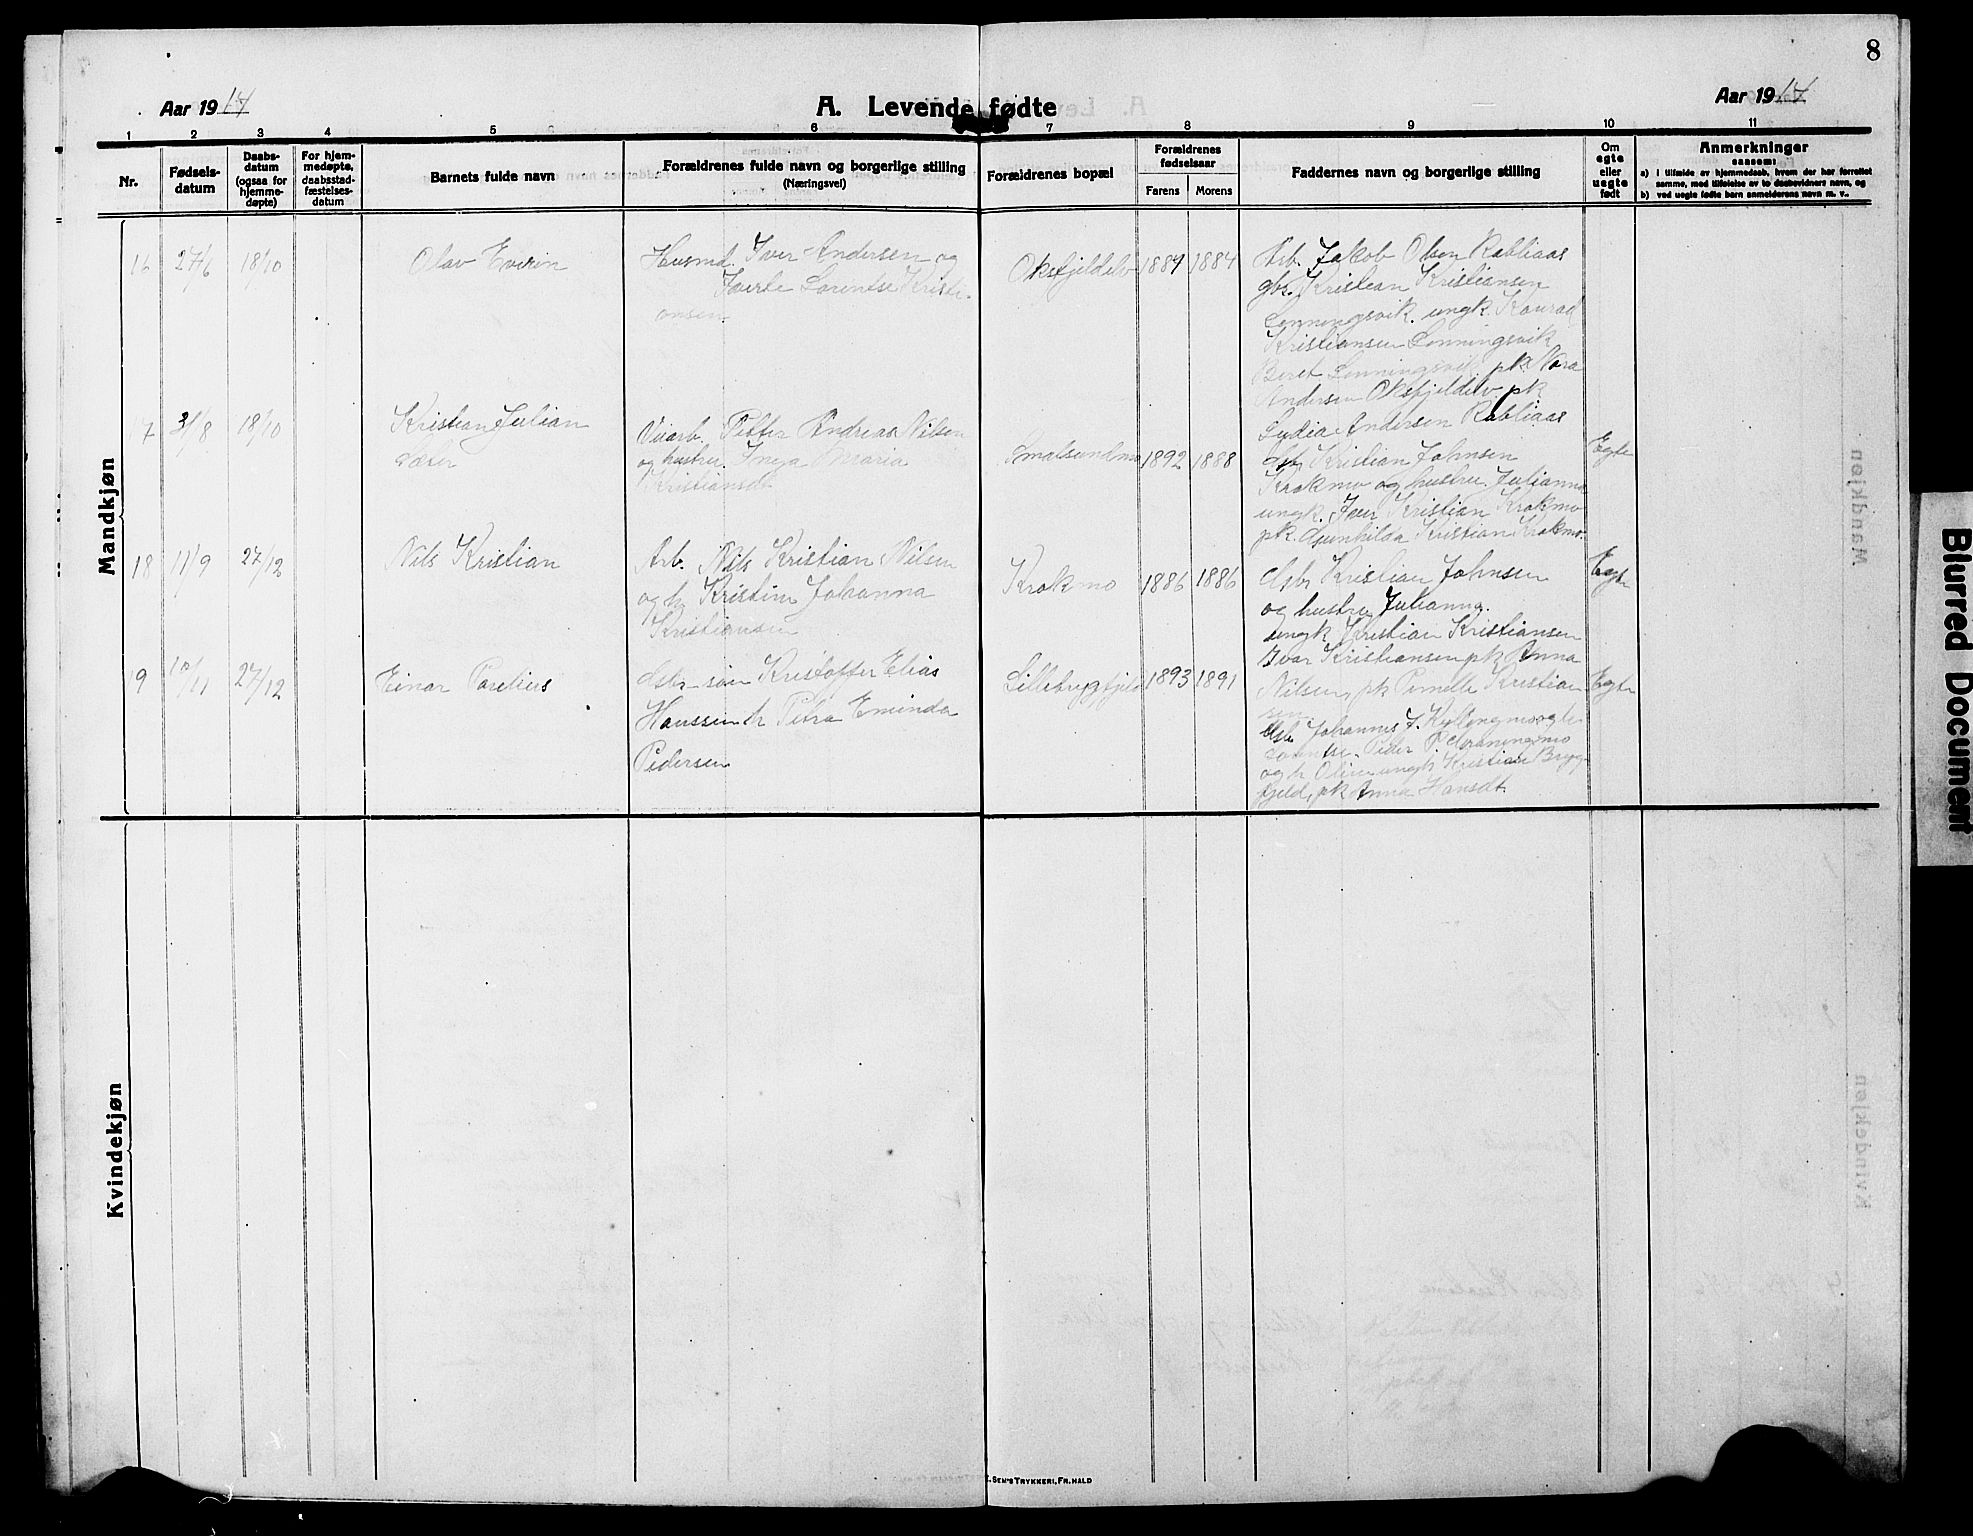 8
Aar 1914
A. Levende fødte
Aar 1914
1 2 3 4 5 6 7 8 9 10 11
Nr.
Fødsels-
datum
Daabs-
datum
(ogsaa for
hjemme-
døpte)
For hjem-
medøpte,
daabsstad-
fæstelses-
datum
Barnets fulde navn
Forældrenes fulde navn og borgerlige stilling
(Næringsvei)
Forældrenes bopæl
Forældrenes
fødselsaar
Farens Morens
Faddernes navn og borgerlige stilling
Om
egte
eller
uegte
født
Anmerkninger
saasom:
a) i tilfælde av hjemmedaab, hvem der har forrettet
samme, med tilføielse av to daabsvidners navn, og
b) ved uegte fødte barn anmelderens navn m. v..
Mandkjøn
16 27/6 18/10
Olav Everin
Husmd. Iver Andersen og
Lorentse Kristi-
ansen
Oksfjeldelv
1884 1884
Arb. Jakob Olsen Rabliaas
gbr. Kristean Kristiansen
Lenningsvik. ungk. Konrad
Kristiansen Lenningsvik
Beret Lenningsvik. pk Nora
Andersen Oksfjeldelv. pk
Lydia Andersen Rabliaas
17 31/8 18/10
Kristian Julian
Petter Andreas Nilsen
og hustru Inga Maria
Kristiansdt
1892 1888
Kristian Johnsen
Krokmo og hustru Julianna
ungk. Iver Kristian Krokmo
pk. Kristian Krokmo.
Egte
18 11/9 27/12
Nils Kristian
Arb. Nils Kristian Nilsen
og h. Kristine Johanna
Kristiansen
Krokmo
1886 1886
Gbr Kristian Johnsen
og hustru Julianna.
ungk Kristian Kristiansen
Ivar Kristiansen pk Anna
Nilsen, pk Pernelle Kristian
sen
Egte
19 10/11 27/12
Einar Parelius
Gbr-søn Kristoffer Elias
Hanssen h Petra Eminda
Pedersen
Lillebryggfjeld
1893 1891
Gbr Johannes J. Kyllingmo og h.
og h Oline ungk Kristian Brygg-
fjeld, pk Anna Hansdt
Egte
Kvindekjøn
SEN'S TRYKKERI, FR. HALD
Blurred Document